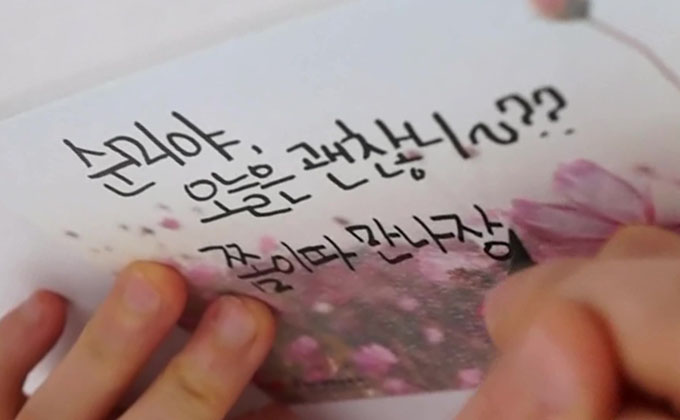 순리야,
오늘은 괜찮니~??
쫌이따 만나장